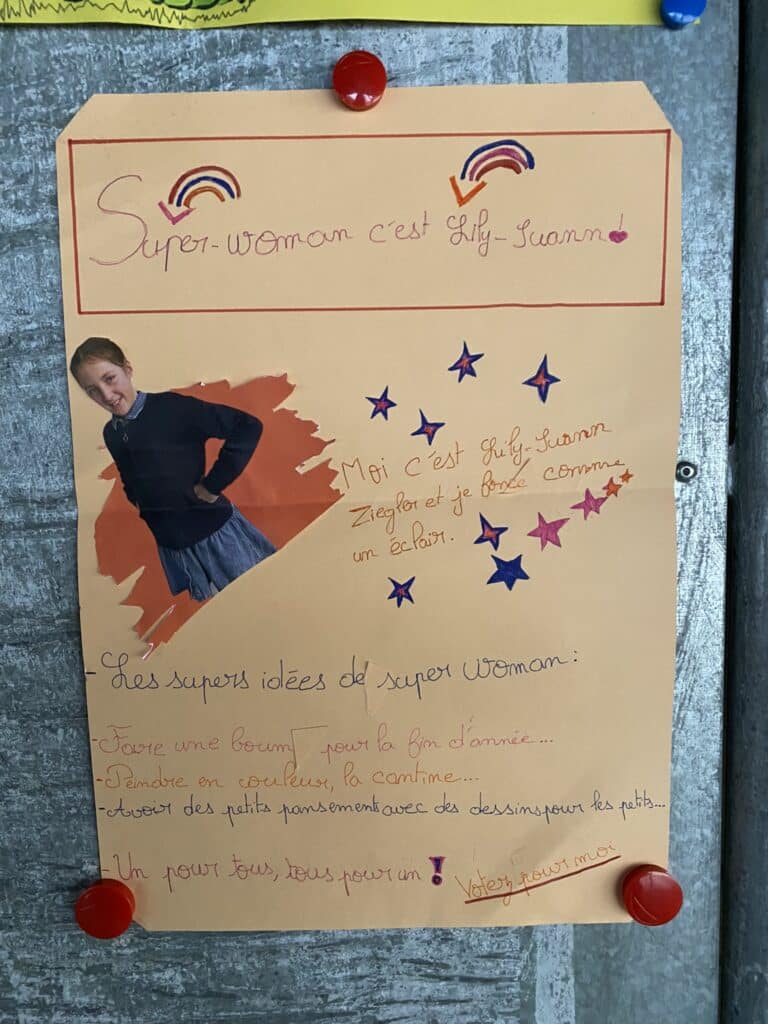 Super-woman c'est Lily-Suann!
Moi c'est Lily-Suann
Ziegler et je fonce comme
un éclair.
- Les supers idées de super woman :
- Faire une boum pour la fin d'année...
- Peindre en couleur, la cantine...
- Avoir des petits pansements avec des dessins pour les petits...
- Un pour tous, tous pour un !
Votez pour moi